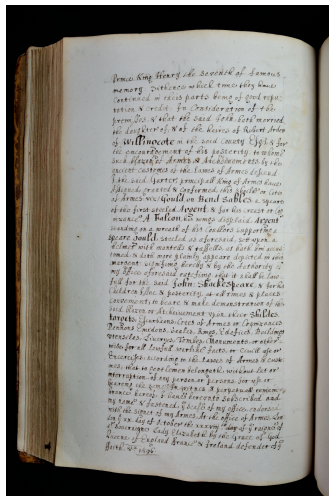 Prince King Henry the Seventh of famous
memory Sithence which tyme they have
Continewed in those parts being of good repu-
tation & credit In Consideration of the
premises & that the said John hath married
the daughter & one of the heires of Robert Arden
of Willingcote in the said County Esqr & for
the encouragement of his posterity to whom
such Blazon of Armes & Atcheivements by the
ancient customes of the lawes of Armes
I the said Garter principall King of Armes have
Assigned granted & Confirmed this Sheild or Cote
of Armes viz Gould on Bend Sables a Speare
of the first steeled Argent & for his creast or Cog-
nizance A Falcon his wings displaid Argent
standing on a wreath of his Coullors supporting a
Speare Gould steeled as aforesaid set upon a
helmet with mantells & tassells as hath bin accus-
tomed & doth more plainly appeare depicted in this
margent signifying hereby & by the Authority of
my Office aforesaid ratefying that it shall be law-
full for the said John Shakespeare & for his
Children issue & posterity, at all tymes & places
convenient to beare & make demonstration of the
said Blazon or Atcheivement upon their Shildes,
targets, Escutcheons, Cotes of Armes or Creast
Penons Guidons, Seales, Rings, Edefices, Buildings
utensiles, Liveries, Tombes, Monuments, or other-
wise for all lawfull warlike facts, or Civill use or
Exercises according to the lawes of Armes & Custo-
mes, that to Gentlemen belongeth without let or
interruption of any person or persons for use or
bearing the same In witnes & perpetuall remem-
brance hereof, I have hereunto Subscribed
my name & fastened the seale of my office, endorsed
with the signet of my Armes, At the Office of Armes Lon-
don day of October the yeare of the reigne of
Lady Elizabeth by the Grace of God
Queene of England France & Ireland defender of the
faith &c 1596